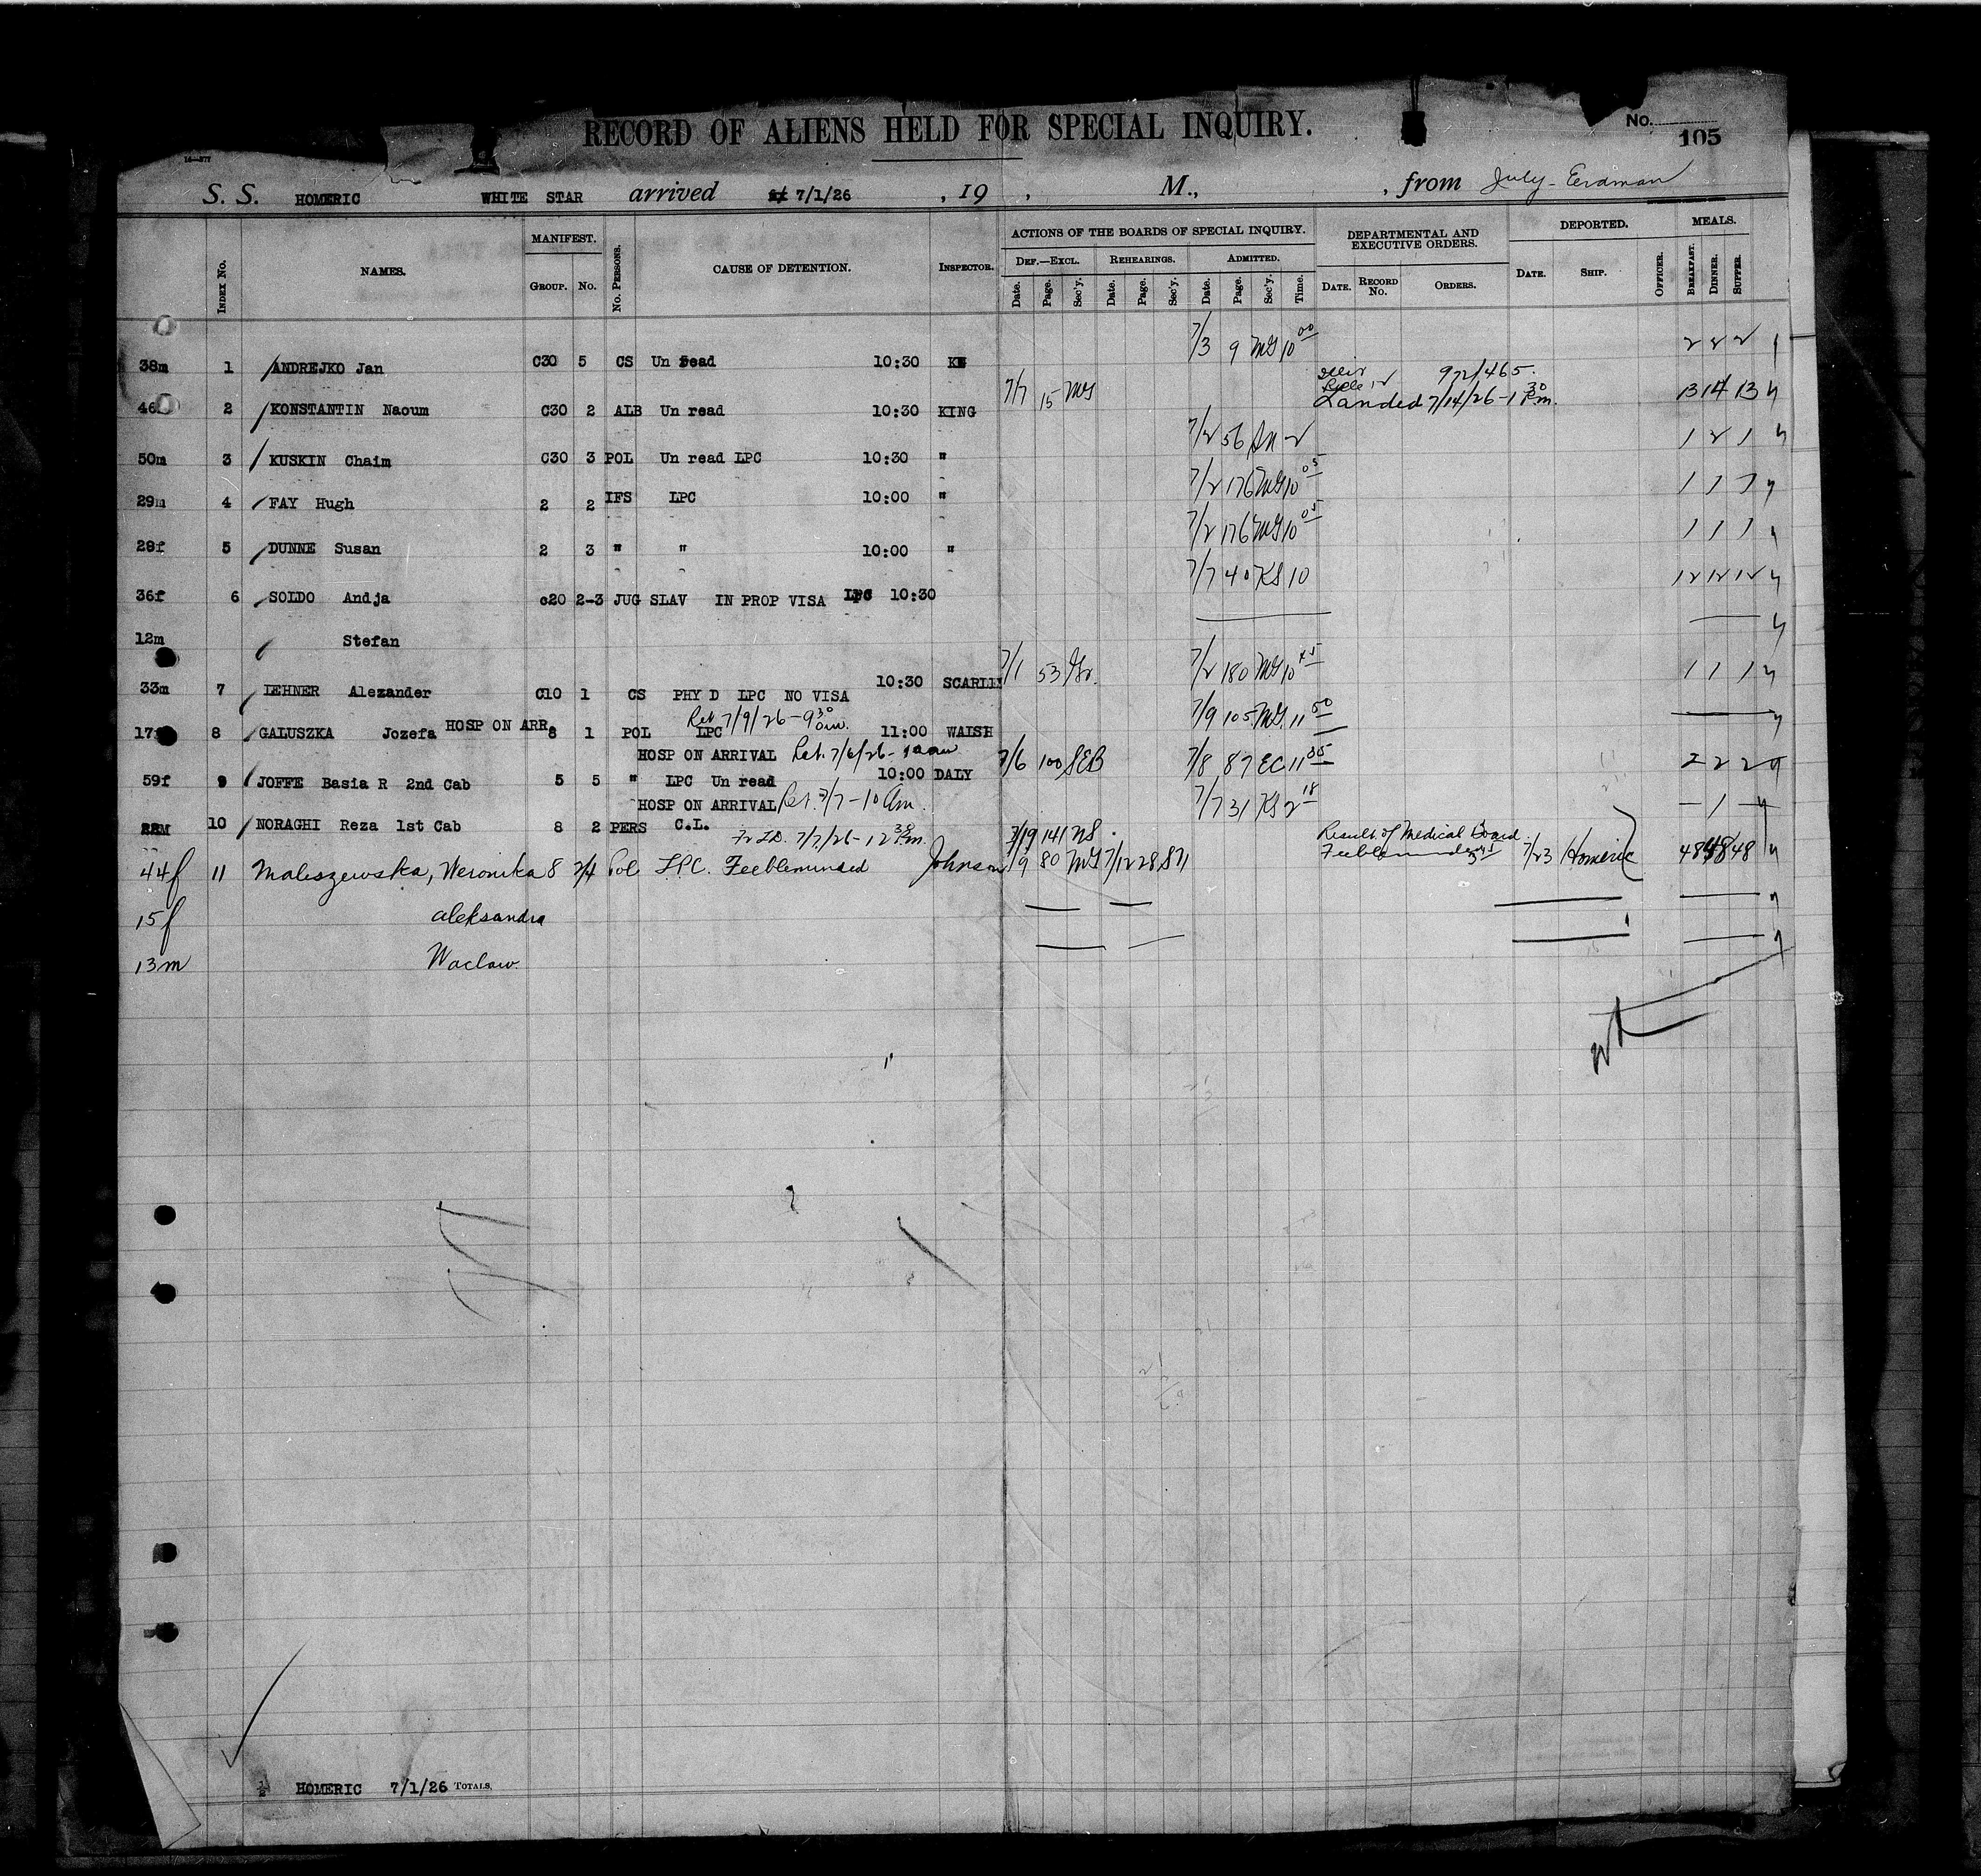 RECORD OF ALIENS HELD FOR SPECIAL INQUIRY.
No. 105
16—577
S. S. HOMERIC WHITE STAR arrived 7/1/26 , 19 , M., , from July - Erdman
Index No. NAMES. MANIFEST. Group. No. No. Persons. CAUSE OF DETENTION. Inspector. ACTIONS OF THE BOARDS OF SPECIAL INQUIRY. Def.—Excl. Date. Page. Sec'y. Rehearings. Date. Page. Sec'y. Admitted. Date. Page. Sec'y. Time. DEPARTMENTAL AND EXECUTIVE ORDERS. Date. Record No. Orders. DEPORTED. Date. Ship. Officer. MEALS. Breakfast. Dinner. Supper.
38m 1 ANDREJKO Jan C30 5 CS Un read 10:30 7/3 9 MG 10 00 2 2 2
972/465.
46 2 KONSTANTIN Naoum C30 2 ALB Un read 10:30 KING 7/7 15 MG Landed 7/14/26-1 30 P.m. 13 14 13
50m 3 KUSKIN Chaim C30 3 POL Un read LPC 10:30 " 7/2 56 2 1 2 1
29m 4 FAY Hugh 2 2 IFS LPC 10:00 " 7/2 176 MG 10 05 1 1 1
28f 5 DUNNE Susan 2 3 " " 10:00 " 7/2 176 MG 10 05 1 1 1
36f 6 SOLDO Andja c20 2-3 JUG SLAV IN PROP VISA LPC 10:30 7/7 40 KS 10 12 12 12
12m Stefan
33m 7 LEHNER Alezander C10 1 CS PHY D LPC NO VISA 10:30 SCARLE 7/1 53 7/2 180 MG 10 45 1 1 1
Ret 7/9/26-9 30 am.
17 8 GALUSZKA Jozefa HOSP ON ARR 8 1 POL LPC 11:00 WALSH 7/9 105 MG 11 50
HOSP ON ARRIVAL Ret. 7/6/26-
59f 9 JOFFE Basia R 2nd Cab 5 5 " LPC Un read 10:00 DALY 7/6 100 SEB 7/8 87 EC 11 35 2 2 2
HOSP ON ARRIVAL Ret. 7/7-10 Am.
22M 10 NORAGHI Reza 1st Cab 8 2 PERS C.L. 7/7 31 KS 2 18 — 1 —
7/7/26-12 30 P.m. 7/19 141 NS. Result of Medical Board
44f 11 Maleszewska, Weronika 8 2/4 Pol LPC. Feebleminded Johnson 7/9 80 MG 7/12 28 Feebleminded 7/23 Homeric 48 48 48
15f Aleksandra
13m Waclaw.
HOMERIC 7/1/26 Totals.